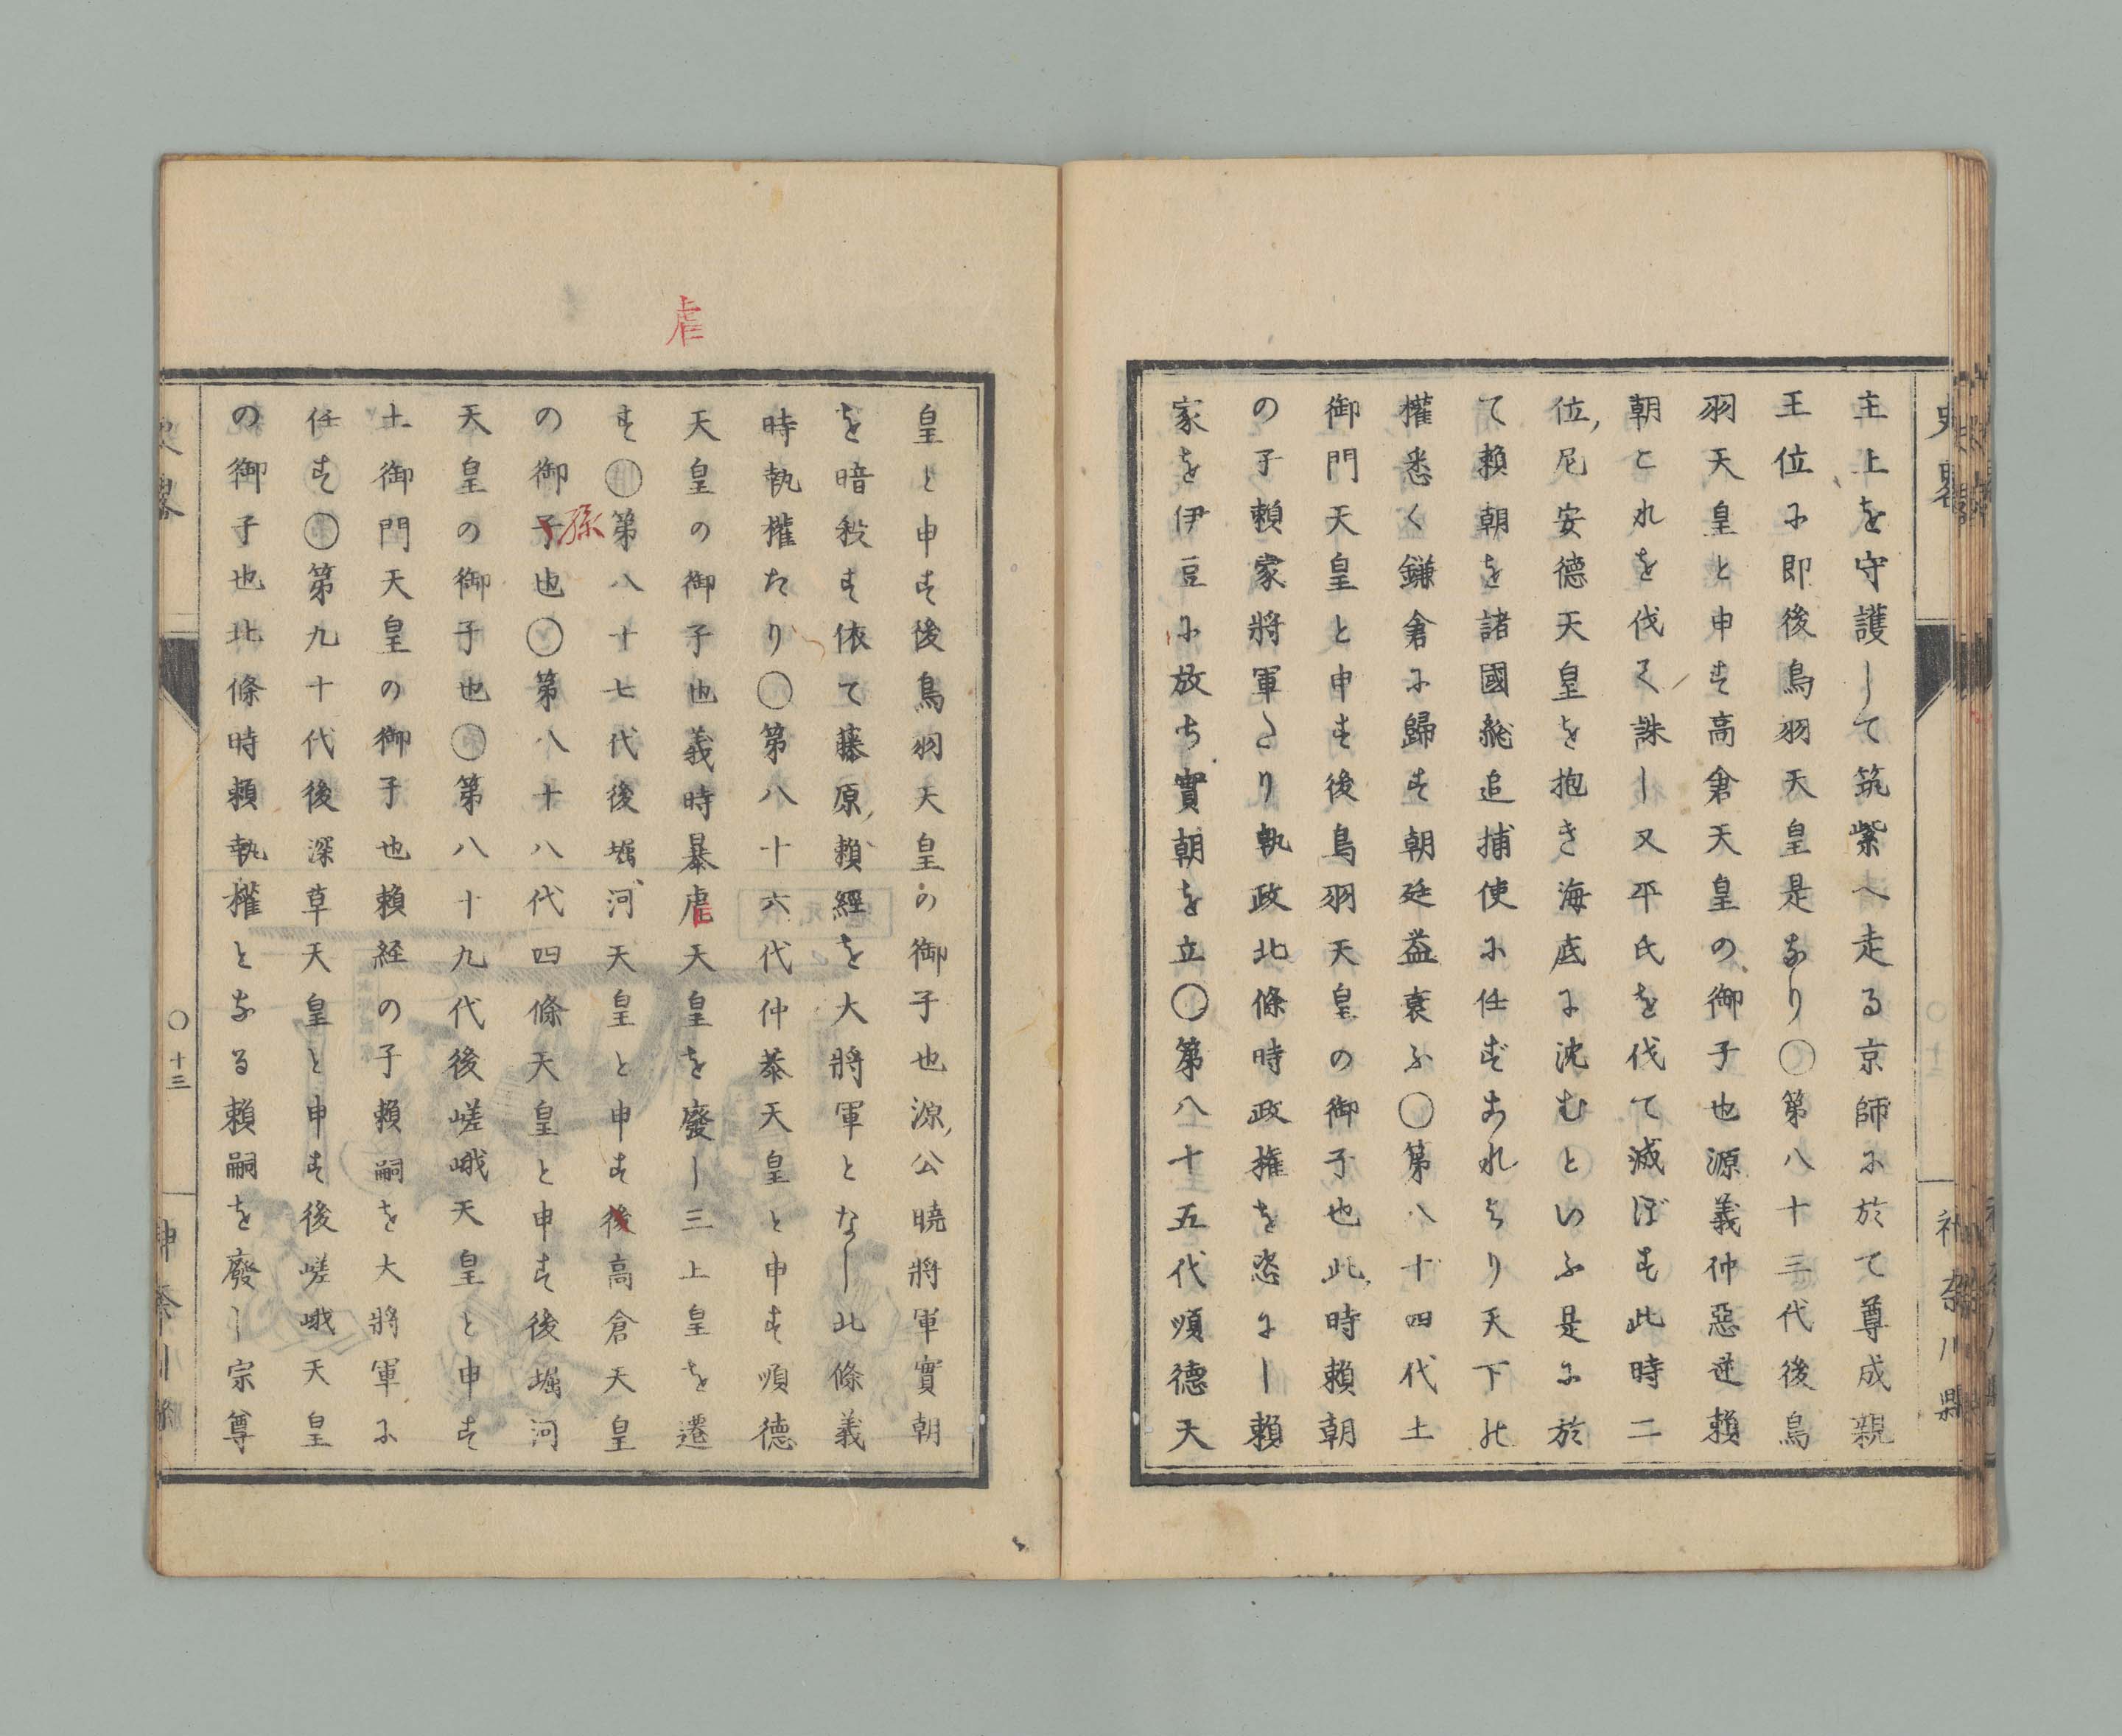 主上を守護して筑紫へ走る京師に於て尊成親
王位に即後鳥羽天皇是なり〇第八十三代後鳥
羽天皇と申す高倉天皇の御子也源義仲惡逆頼
朝これを伐て誅し又平氏を伐て滅ぼす此時二
位尼安德天皇を抱き海底に沈むといふ是に於
て頼朝を諸國総追捕使に任ずこれより天下の
權悉く鎌倉に歸す朝廷益衰ふ〇第八十四代土
御門天皇と申す後鳥羽天皇の御子也此時頼朝
の子頼家將軍たり執政北條時政権を恣にし頼
家を伊豆に放ち實朝を立〇第八十五代順德天
史畧
神奈川縣
虐
皇と申す後鳥羽天皇の御子也源公暁將軍實朝
を暗殺す依て藤原頼經を大將軍となし北條義
時執權たり〇第八十六代仲恭天皇と申す順德
天皇の御子也義時暴虐天皇を廢し三上皇を遷
す〇第八十七代後堀河天皇と申す後高倉天皇
の御子孫也〇第八十八代四條天皇と申す後堀河
天皇の御子也〇第八十九代後嵯峨天皇と申す
土御門天皇の御子也頼経の子頼嗣を大將軍に
任す〇第九十代後深草天皇と申す後嵯峨天皇
の御子也北條時頼執權となる頼嗣を廢し宗尊
史畧
〇十三
神奈川縣